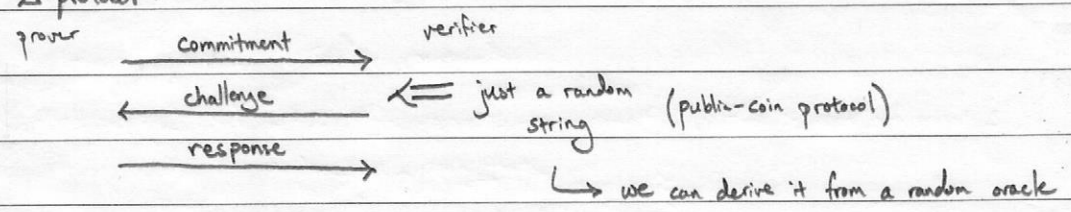 protocol
prover commitment verifier
challenge just a random (public-coin protocol)
string
response
we can derive it from a random oracle